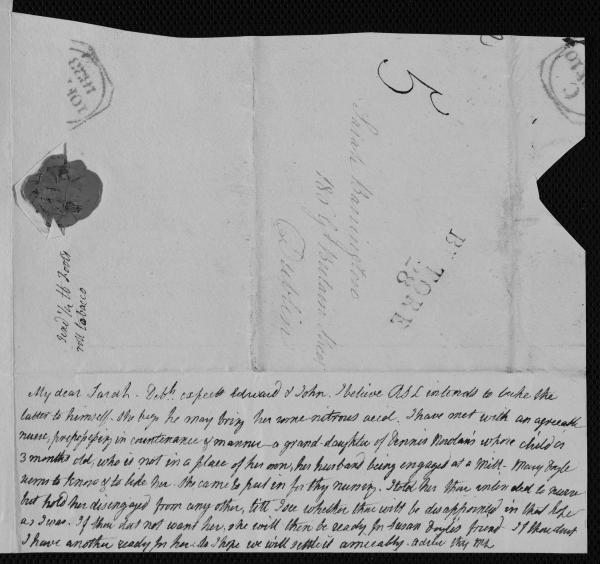 1823
5
Sarah Barrington
Gt. Britain Street
Dublin
Bn. TORE
8
send ½ lb Foots
roll tobacco
My dear Sarah. Deb.h expects Edward & John. I believe RSL intends to take the
latter to himself. She begs he may bring her some nitrous acid. I have met with an agreeable
nurse, prepossessing in countenance & manner a grand-daughter of Dennis Nowlan's whose child is
3 months old, who is not in a place of her own, her husband being engaged at a mill. Mary Doyle
seems to know & to like her. She came to put in for thy nursing. I told her thou intended to nurse
but hold her disengaged from any other, till I see whether thou will be disappointed in that hope
as I was. If thou dost not want her, she will then be ready for Susan Doyle's friend. If thou dost
I have another ready for her. So I hope we will settle it amicably. adieu thy ML